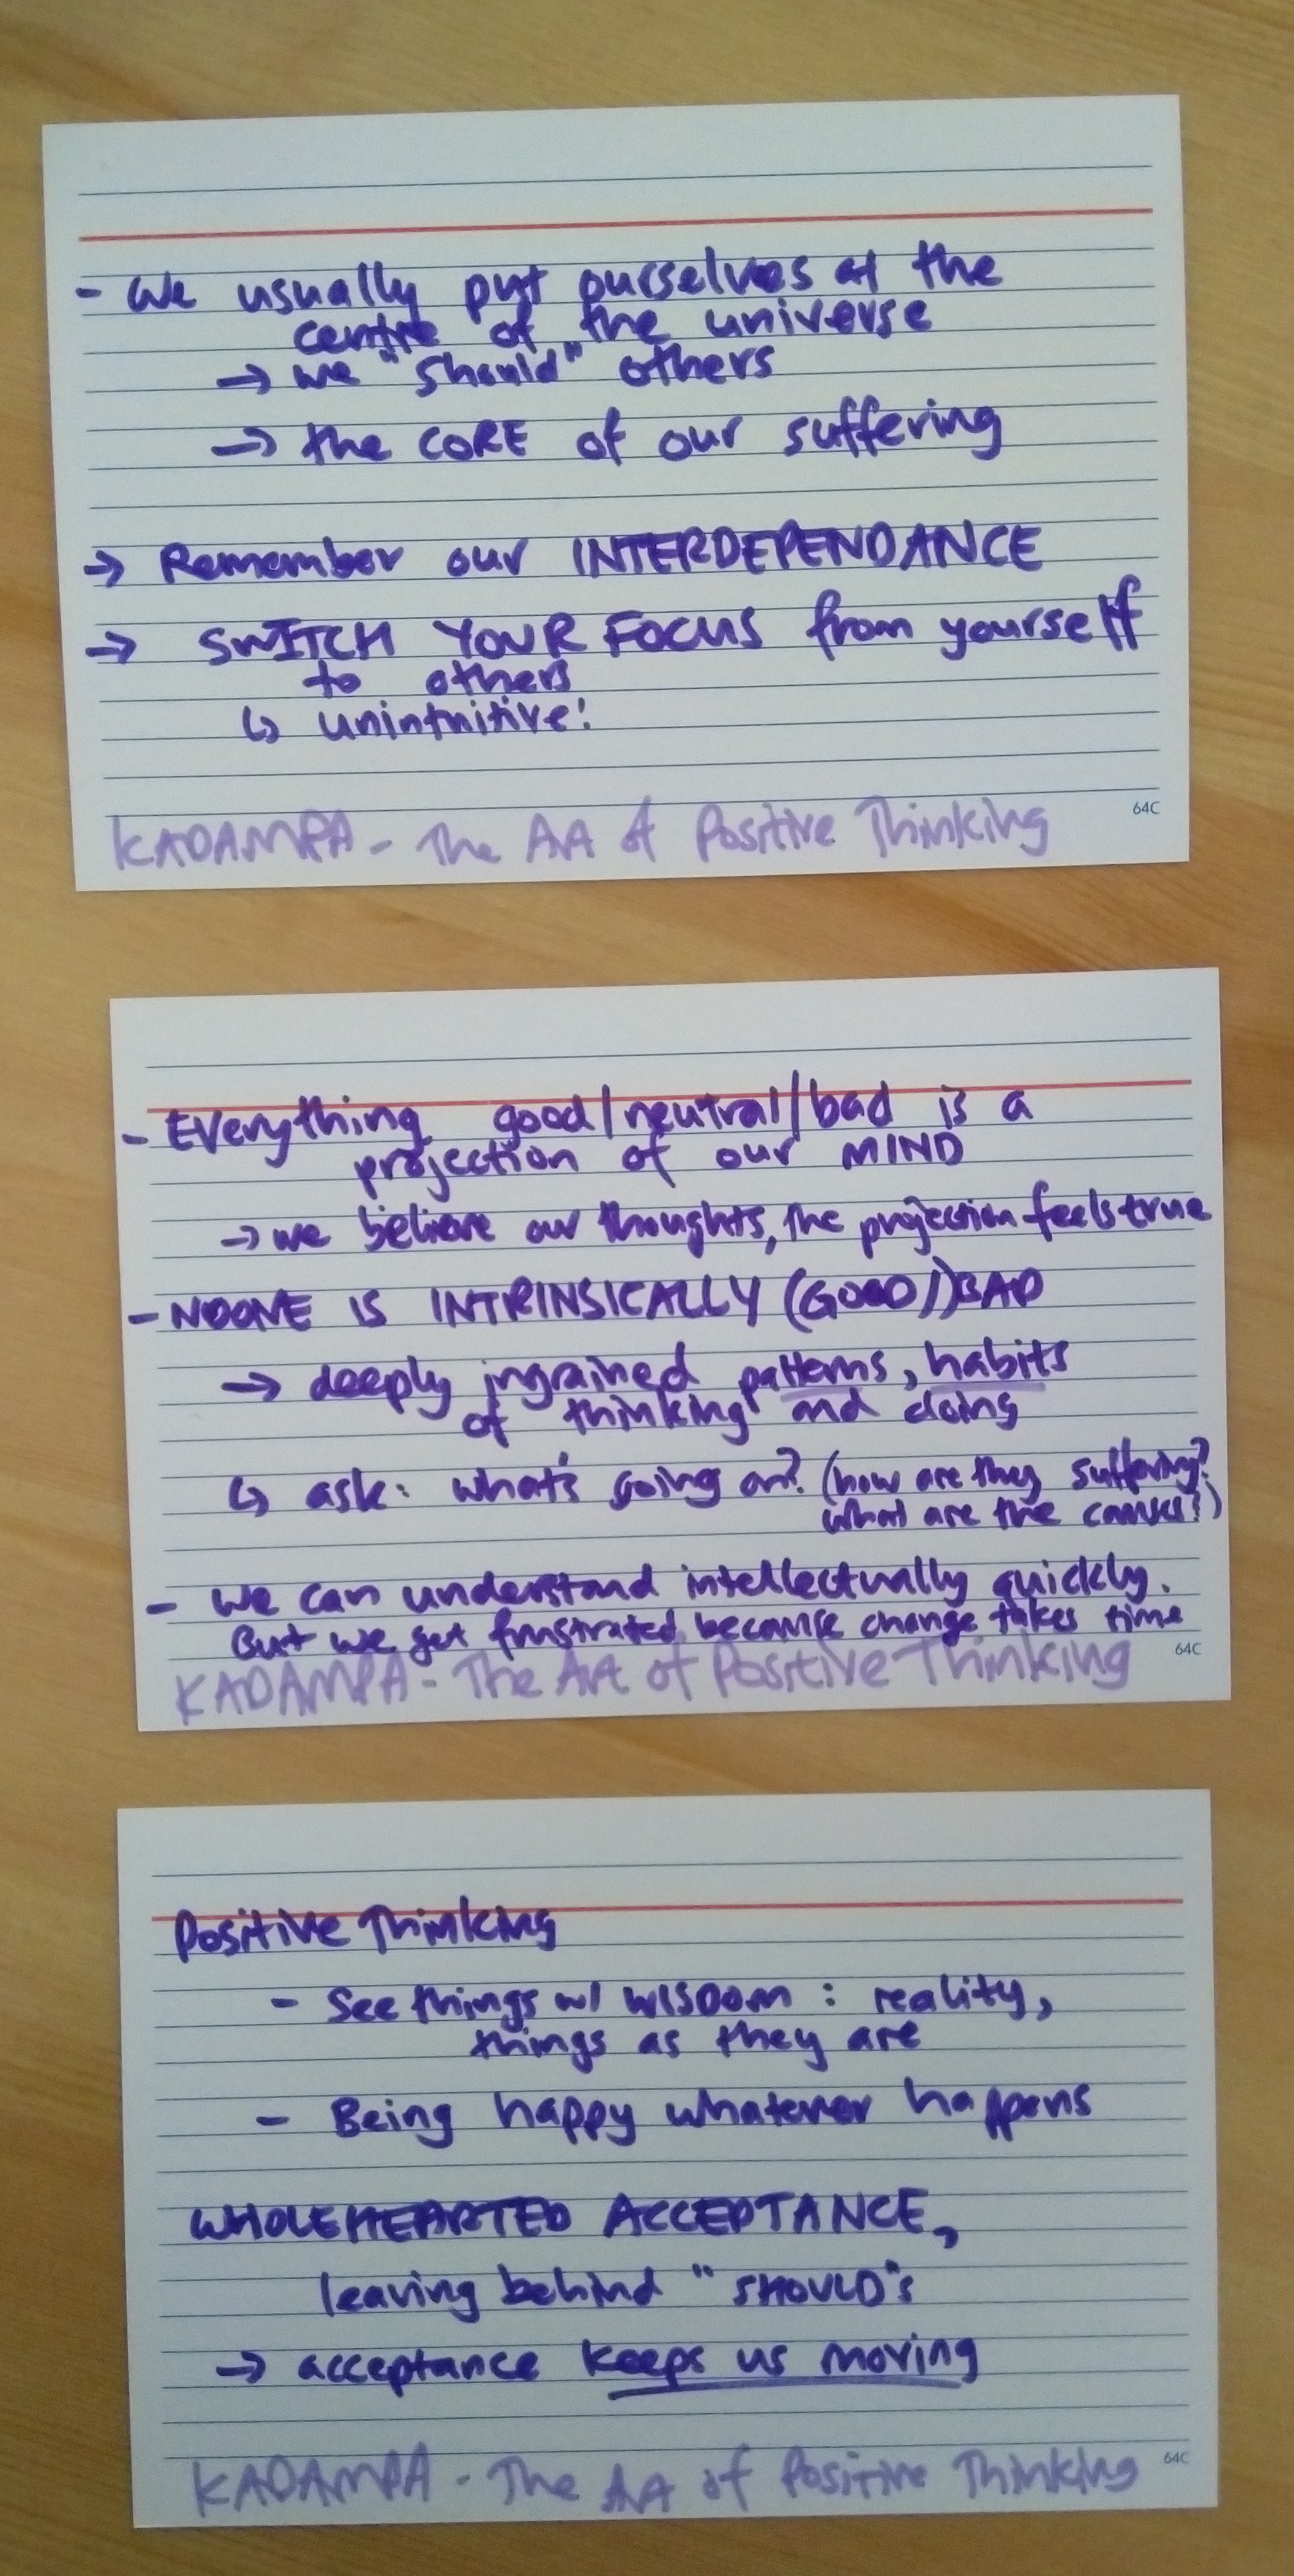 - We usually put ourselves at the
centre of the universe
→ we "should" others
→ the CORE of our suffering
→ Remember our INTERDEPENDANCE
→ SWITCH YOUR FOCUS from yourself
to others
↳ unintuitive!
64C
KADAMPA - The Art of Positive Thinking
- Everything good/neutral/bad is a
projection of our MIND
→ we believe our thoughts, the projection feels true
- NOONE IS INTRINSICALLY (GOOD/)BAD
→ deeply ingrained patterns, habits
of thinking and doing
↳ ask: what's going on? (how are they suffering?
what are the causes?)
- We can understand intellectually quickly.
But we get frustrated because change takes time
64C
KADAMPA - The Art of Positive Thinking
Positive Thinking
- See things w/ WISDOM : reality,
things as they are
- Being happy whatever happens
WHOLEHEARTED ACCEPTANCE,
leaving behind "SHOULD"s
→ acceptance keeps us moving
64C
KADAMPA - The Art of Positive Thinking